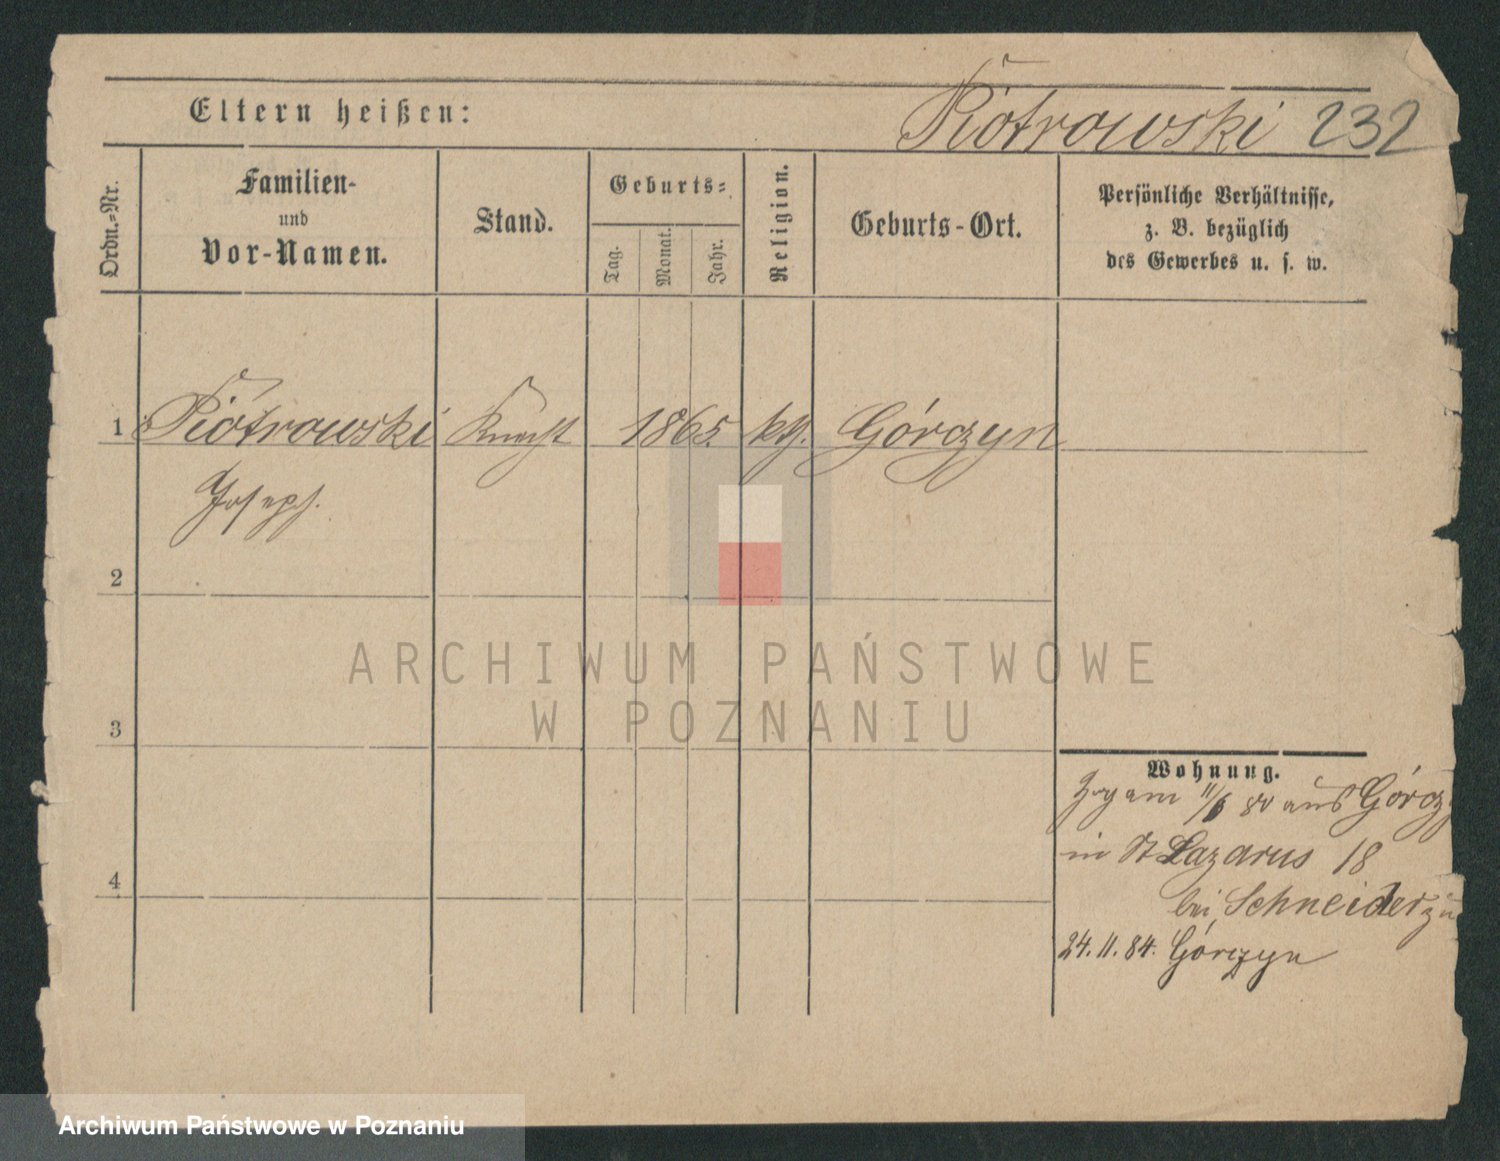 Eltern heißen:
Piotrowski 232
Ordn.-Nr.
Familien-
und
Vor-Namen.
Stand.
Geburts-
Tag.
Monat.
Jahr.
Religion.
Geburts-Ort.
Persönliche Verhältnisse,
z. B. bezüglich
des Gewerbes u. s. w.
1 Piotrowski Knecht 1865. kth. Górczyn
Joseph.
2
3
4
Wohnung.
Zog am 11/6 80 aus Górcz
in St Lazarus 18
bei Schneider zu
24.11.84. Górczyn
ARCHIWUM PAŃSTWOWE
W POZNANIU
Archiwum Państwowe w Poznaniu